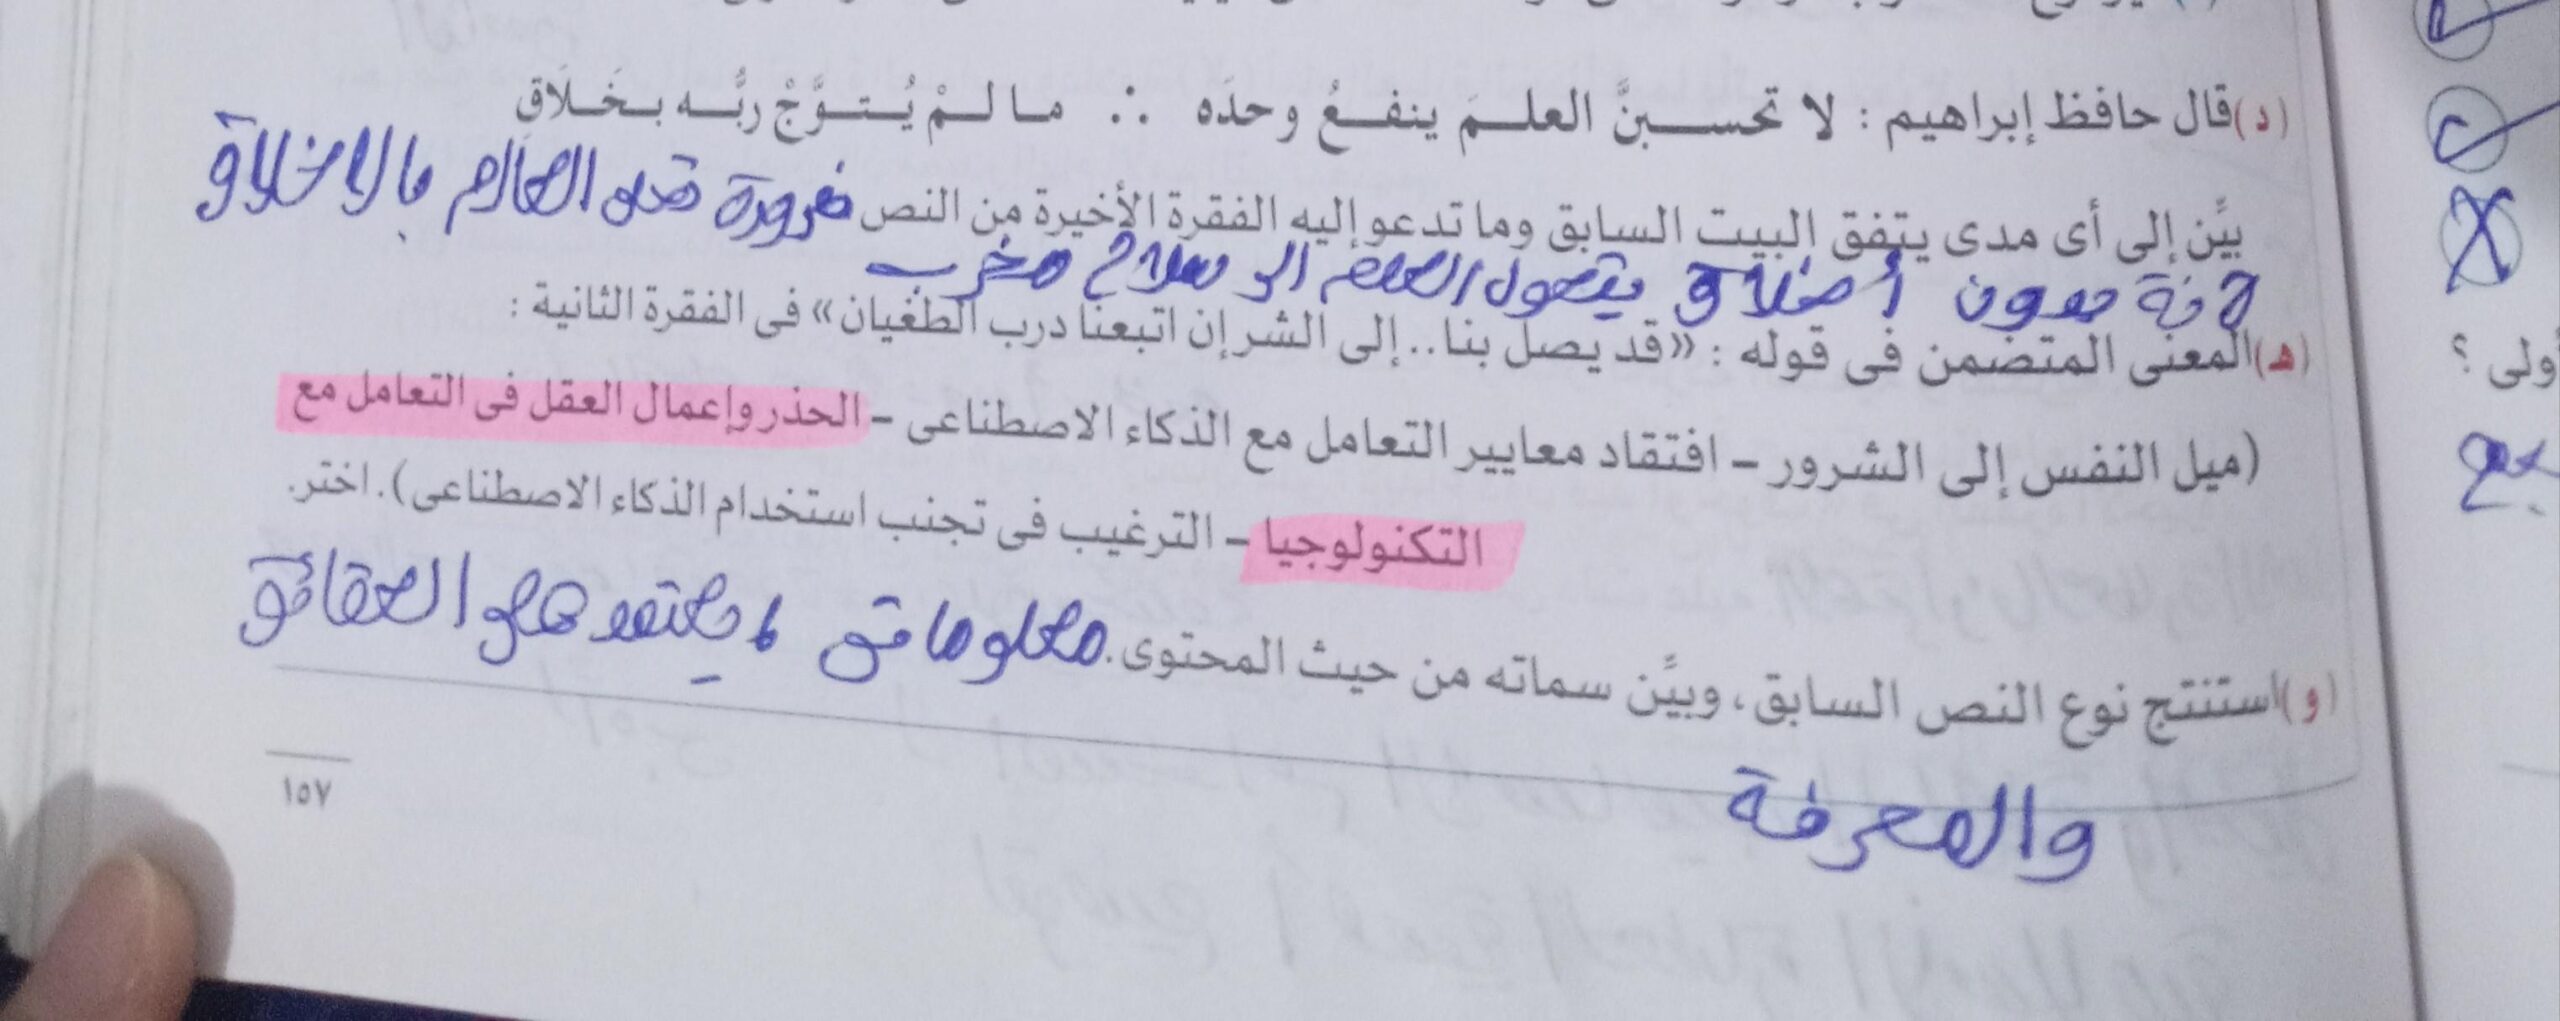 (د) قال حافظ إبراهيم : لا تحسبنَّ العلمَ ينفعُ وحدَه ∴ ما لمْ يُتوَّجْ ربُّه بخَلَاق
بيِّن إلى أى مدى يتفق البيت السابق وما تدعو إليه الفقرة الأخيرة من النص ضرورة تحلى العالم بالاخلاق
لانه بدون أخلاق يتحول العلم الى سلاح مخرب
(هـ) المعنى المتضمن فى قوله : «قد يصل بنا.. إلى الشر إن اتبعنا درب الطغيان» فى الفقرة الثانية :
(ميل النفس إلى الشرور – افتقاد معايير التعامل مع الذكاء الاصطناعى – الحذر وإعمال العقل فى التعامل مع
التكنولوجيا – الترغيب فى تجنب استخدام الذكاء الاصطناعى). اختر.
(و) استنتج نوع النص السابق، وبيِّن سماته من حيث المحتوى. معلوماتى ، يعتمد على الحقائق
والمعرفة
١٥٧
أولى ؟